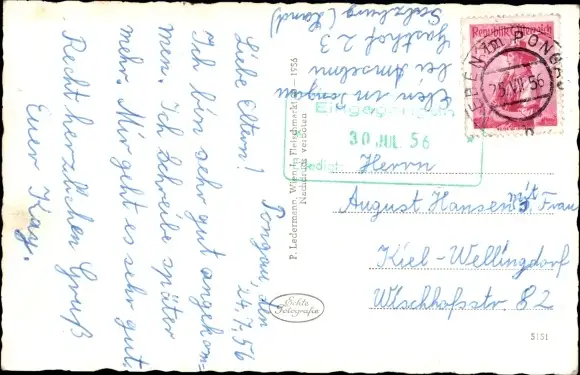 Pongau, den
24.7.56
Liebe Eltern!
Ich bin sehr gut angekom-
men. Ich schreibe später
mehr. Mir geht es sehr gut.
Recht herzlichen Gruß
Euer Kay.
Eben im Pongau
bei
Gasthof 23
Salzburg (Land)
P. Ledermann, Wien, I., Fleischmarkt 20 - 1956
Nachdruck verboten
Republik Österreich
EBEN im PONGAU
25.VII.56
Eingegangen
30 JUL 56
Herrn
August Hansen mit Frau
Kiel-Wellingdorf
Wischhofstr. 82
Echte
Fotografie
5151